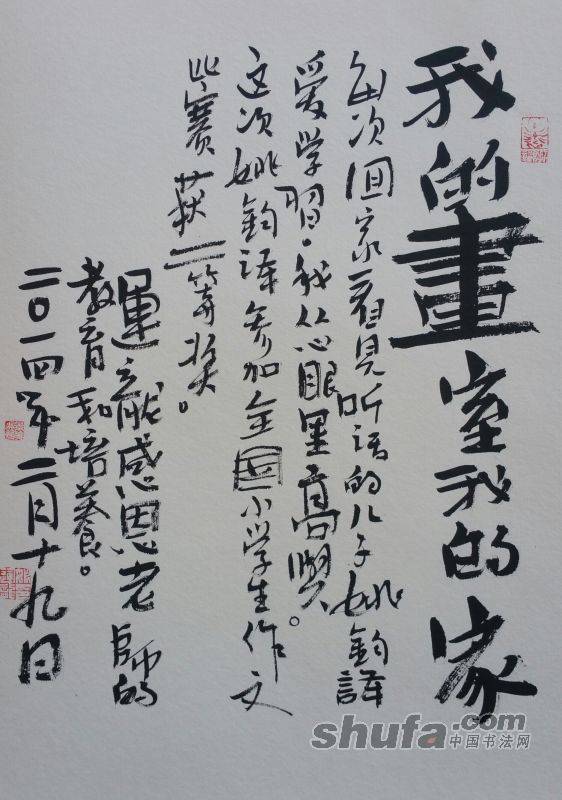 我的畫室我的家
每次回家看見听话的儿子姚鈞譯
爱学習。我从心眼里高興。
这次姚鈞译参加全国小学生作文
比赛获二等奖。
運立献感恩老師的
教育和培養。
二〇一四年二月十九日
shufa.com
中国书法网